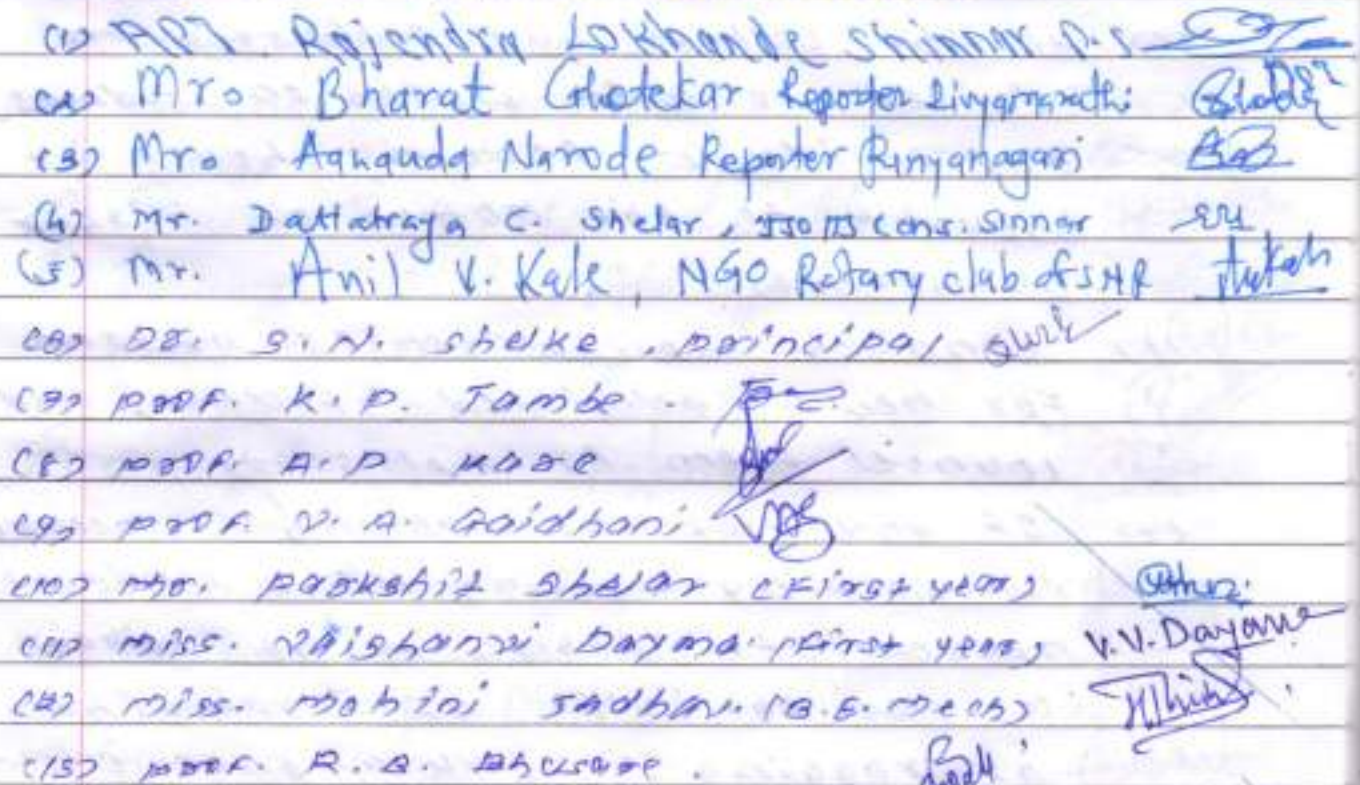 (1) API. Rajendra Lokhande shinnar P.S
(2) Mr. Bharat Ghotekar Reporter Divyamarathi
(3) Mr. Narode Reporter Punyanagari
(4) Mr. Dattatraya C. Shelar, cons. Sinnar
(5) Mr. Anil V. Kale, NGO Rotary club of SNR
(6) Dr. S. N. Shelke, principal
(7) prof. K. P. Tambe.
(8) prof. A. P. Kare
(9) prof. V. A. Gaidhani
(10) Mr. Parkshit Shelar (First year)
(11) miss. Vaishanvi Dayma (First year) V.V. Dayama
(12) miss. Mohini Jadhav. (B.E. Mech)
(13) prof. R. B. Bhusare.